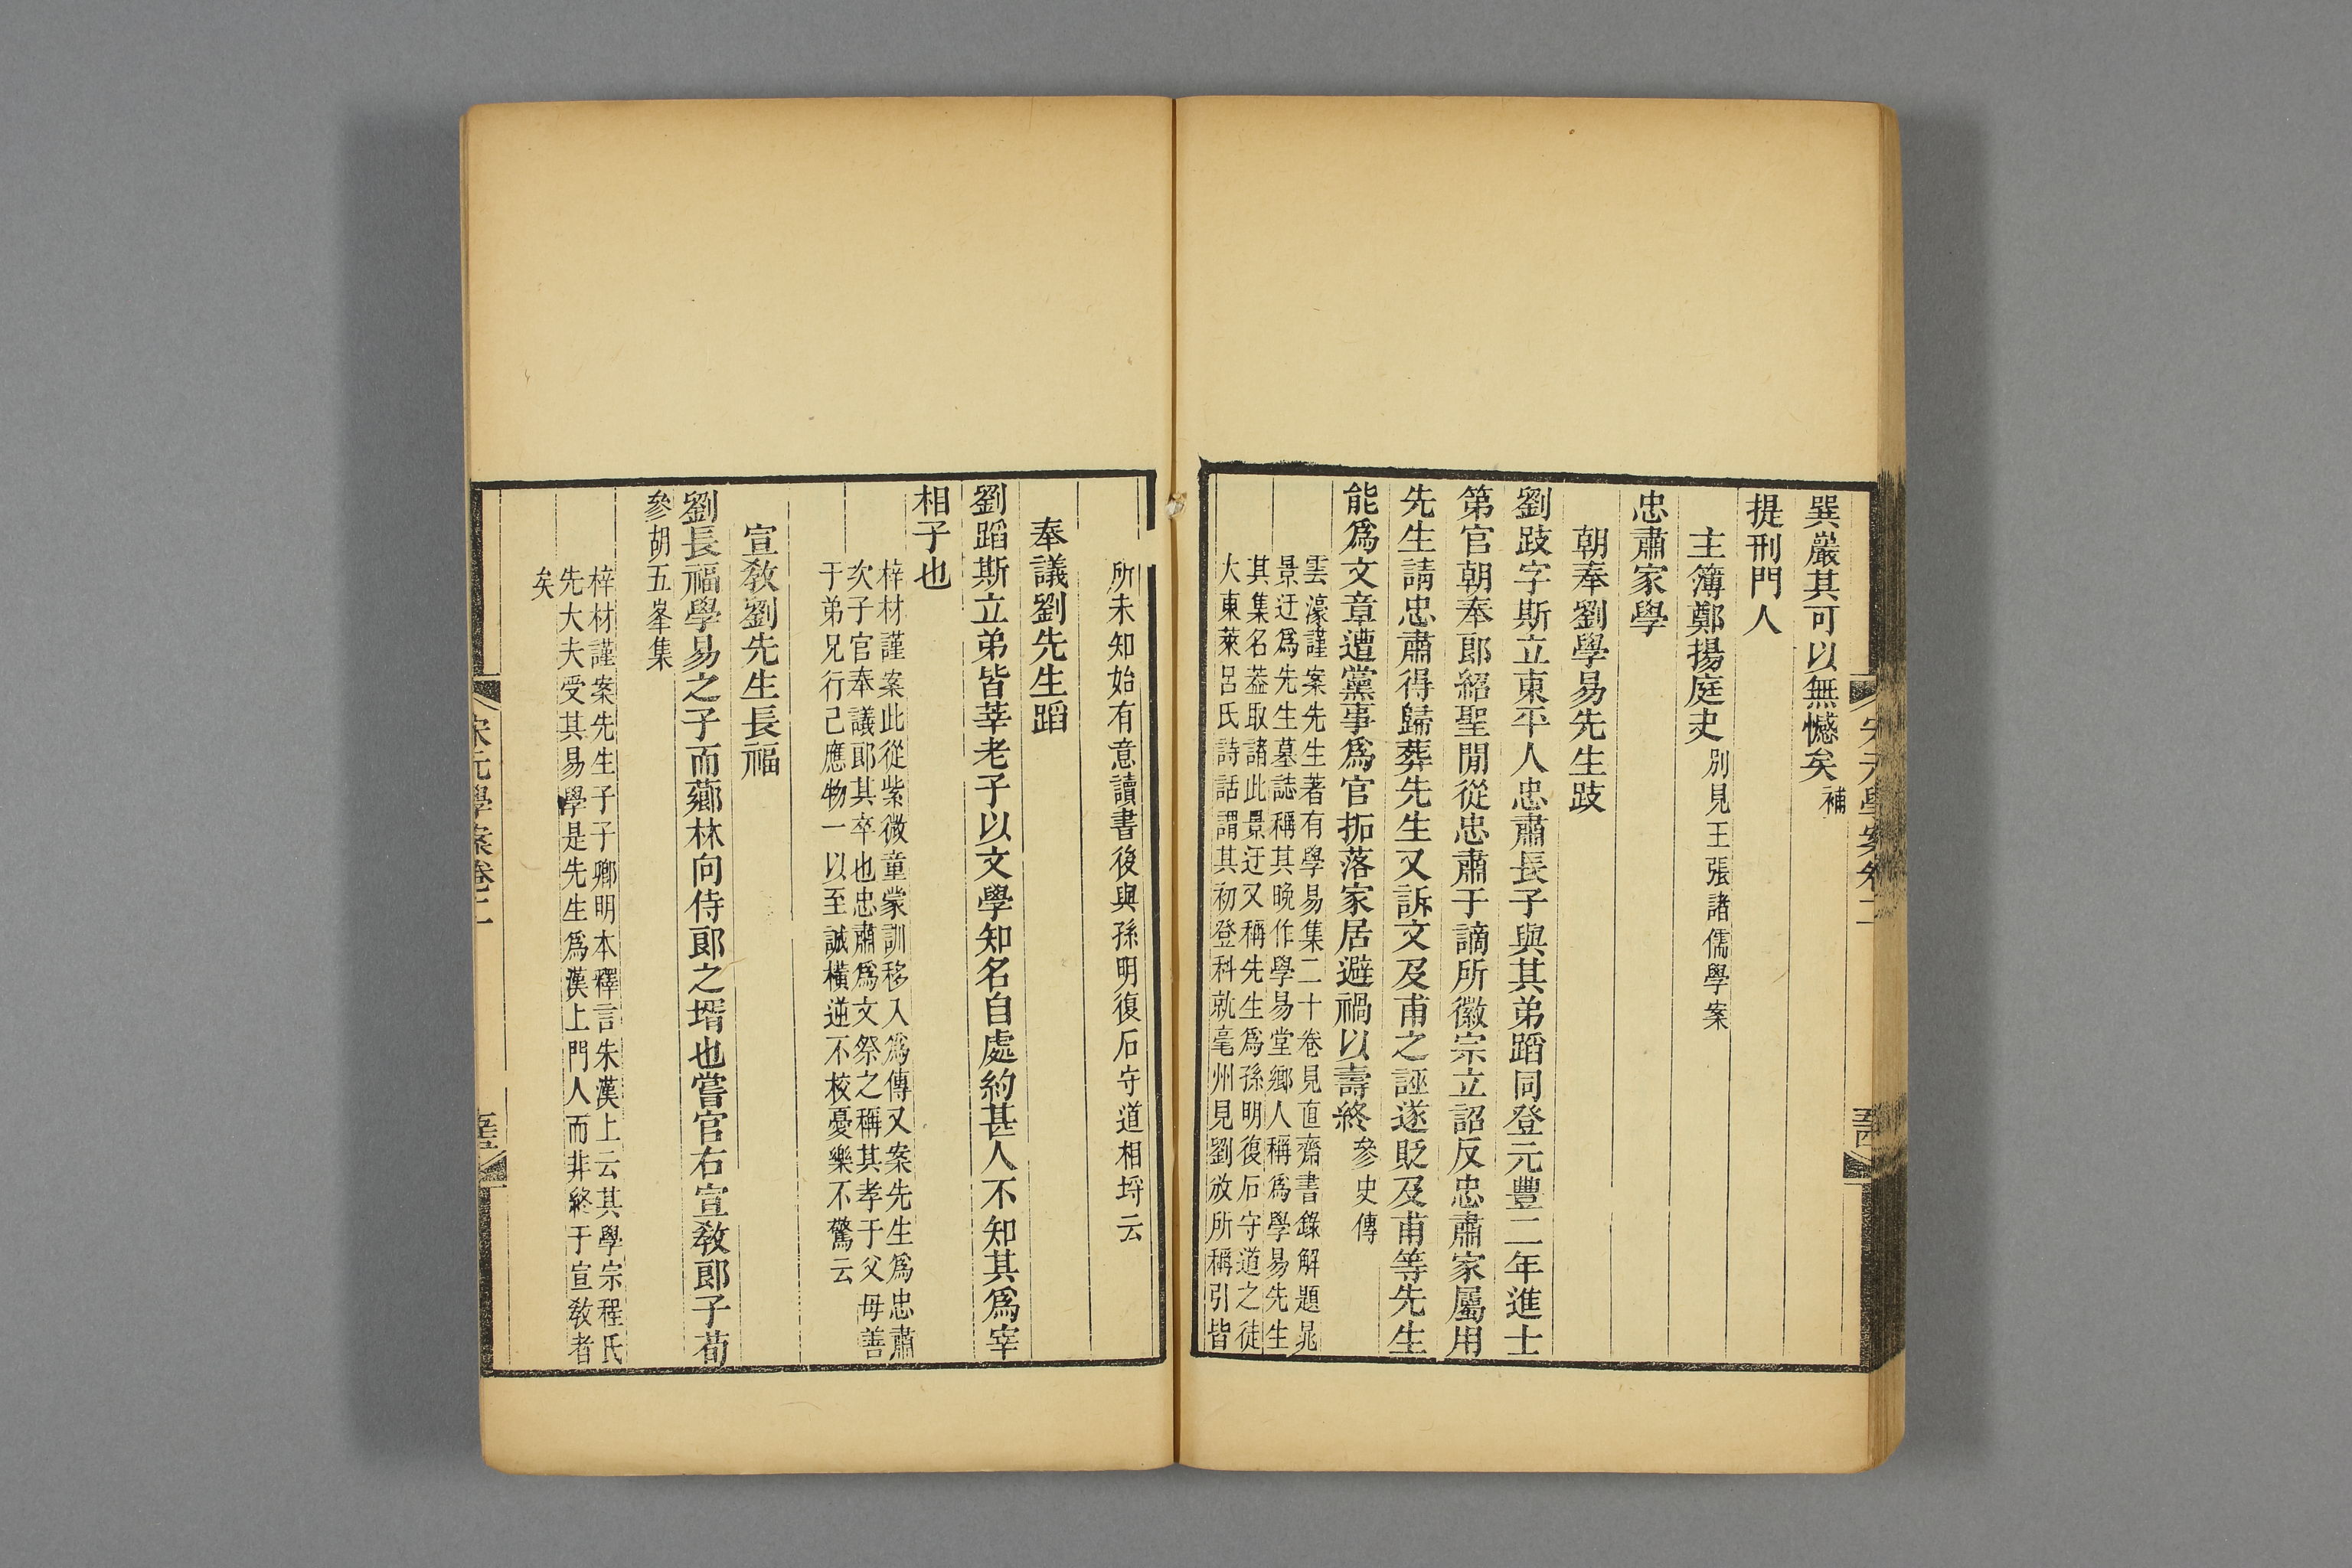 宋元學案卷二
巽嚴其可以無憾矣補
提刑門人
主簿鄭揚庭夬別見王張諸儒學案
忠肅家學
朝奉劉學易先生跂
劉跂字斯立東平人忠肅長子與其弟蹈同登元豐二年進士
第官朝奉郎紹聖閒從忠肅于謫所徽宗立詔反忠肅家屬用
先生請忠肅得歸葬先生又訴文及甫之誣遂貶及甫等先生
能爲文章遭黨事爲官拓落家居避禍以壽終參史傳
雲濠謹案先生著有學易集二十卷見直齋書錄解題晁
景迂爲先生墓誌稱其晚作學易堂鄉人稱爲學易先生
其集名葢取諸此景迂又稱先生爲孫明復石守道之徒
大東萊呂氏詩話謂其初登科就亳州見劉攽所稱引皆
所未知始有意讀書後與孫明復石守道相埒云
奉議劉先生蹈
劉蹈斯立弟皆莘老子以文學知名自處約甚人不知其爲宰
相子也
梓材謹案此從紫微童蒙訓移入爲傳又案先生爲忠肅
次子官奉議郎其卒也忠肅爲文祭之稱其孝于父母善
于弟兄行己應物一以至誠橫逆不校憂樂不驚云
宣敎劉先生長福
劉長福學易之子而薌林向侍郎之壻也嘗官右宣敎郎子荀
參胡五峯集
梓材謹案先生子子卿明本釋言朱漢上云其學宗程氏
先大夫受其易學是先生爲漢上門人而非終于宣敎者
矣
宋元學案卷二